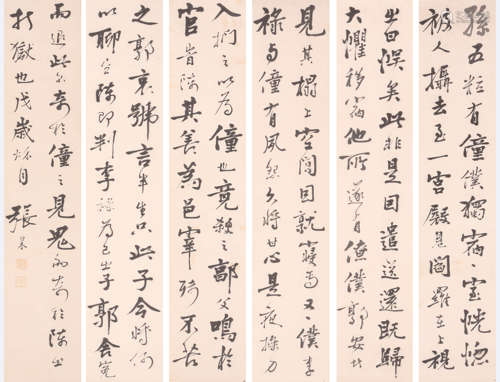 孫五粒有僮僕獨宿一室恍惚
被人攝去至一宮殿見閻羅在上視
之曰誤矣此非是因遣送還既歸
大懼移宿他所遂有僚僕郭安者
見其榻上空閒因就寢焉又一僕李
祿與僮有夙怨久將甘心是夜操刀
入捫之以為僮也竟殺之郭父鳴於
官時陳其善為邑宰殊不苦
之郭哀號言半生止此子今將何
以聊生陳即判李祿為之子郭含冤
而退此不奇於僮之見鬼而奇於陳之
折獄也戊歲秋月 張